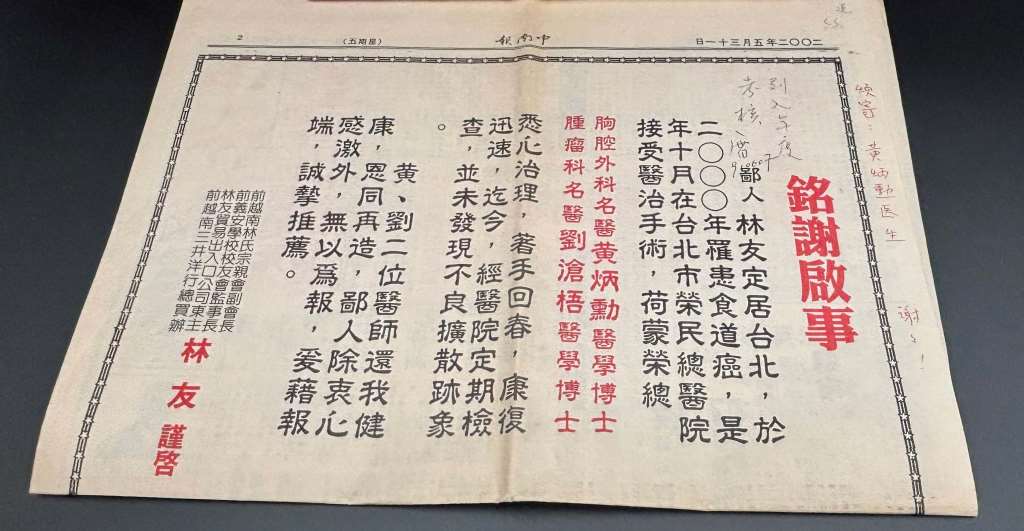 二〇〇二年五月三十一日
中南報
(星期五)
2
銘謝啟事
鄙人林友定居台北,於
二〇〇〇年罹患食道癌,是
年十月在台北市榮民總醫院
接受醫治手術,荷蒙榮總
胸腔外科名醫黃炳勳醫學博士
腫瘤科名醫劉滄梧醫學博士
悉心治理,著手回春,康復
迅速,迄今,經醫院定期檢
查,並未發現不良擴散跡象
。
黃、劉二位醫師還我健
康,恩同再造,鄙人除衷心
感激外,無以爲報,爰藉報
端,誠摯推薦。
前越南林氏宗親會副會長
前義安學校校友會監事長
林友貿易出入口公司東主
前越南三井洋行總買辦
林友謹啓
煩寄:黃炳勳医生
謝謝!
列入年度
考核